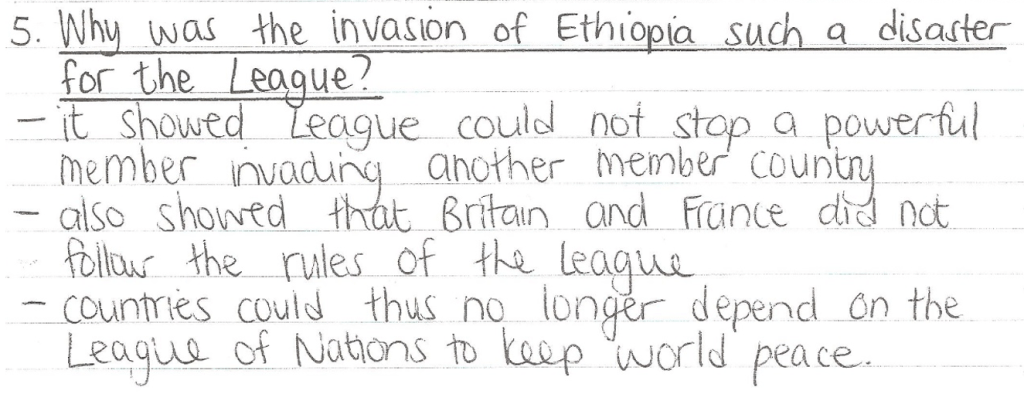 5. Why was the invasion of Ethiopia such a disaster
for the League?
- it showed League could not stop a powerful
member invading another member country
- also showed that Britain and France did not
follow the rules of the league
- countries could thus no longer depend on the
League of Nations to keep world peace.